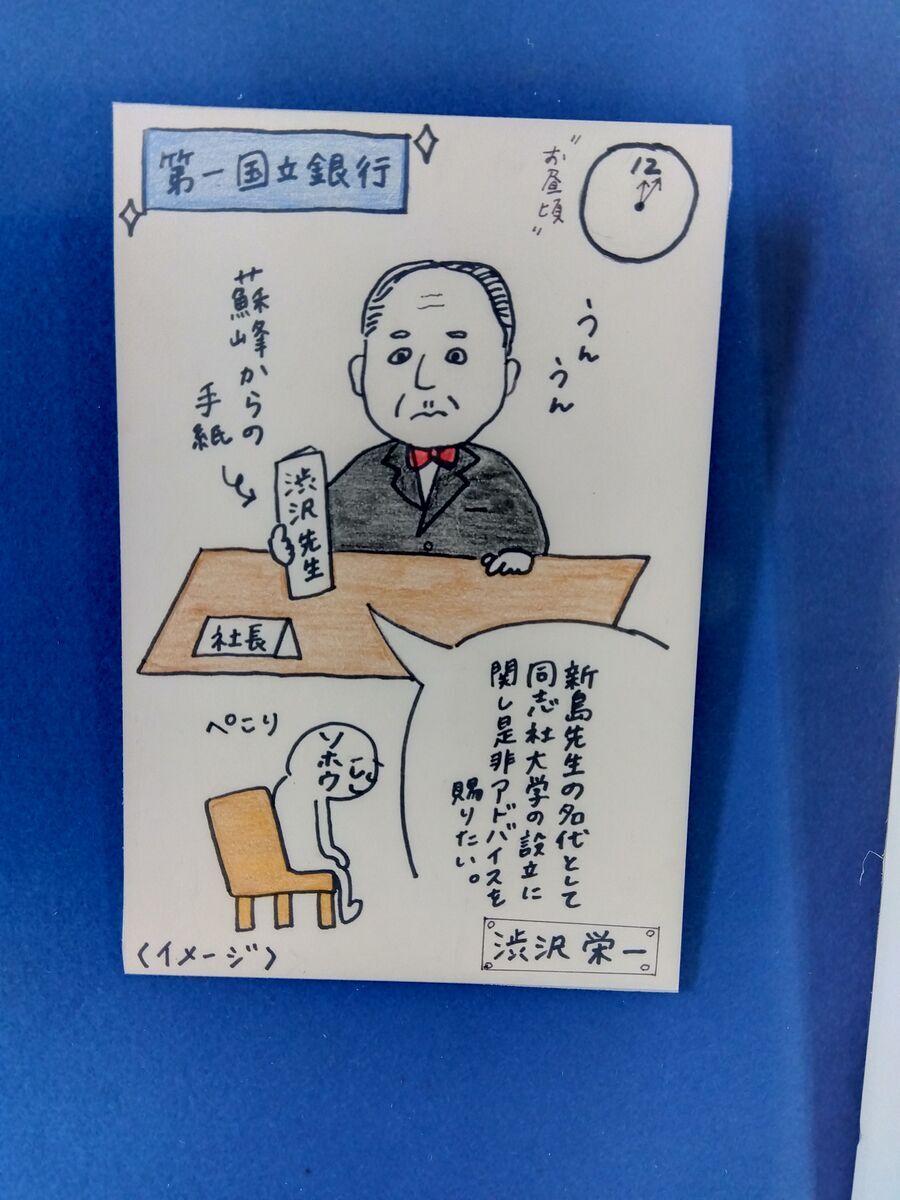 第一国立銀行
"お昼頃"
12
蘇峰からの
手紙
うん
うん
渋沢先生
社長
新島先生の名代として
同志社大学の設立に
関し是非アドバイスを
賜りたい。
ぺこり
ソホウ
<イメージ>
渋沢栄一